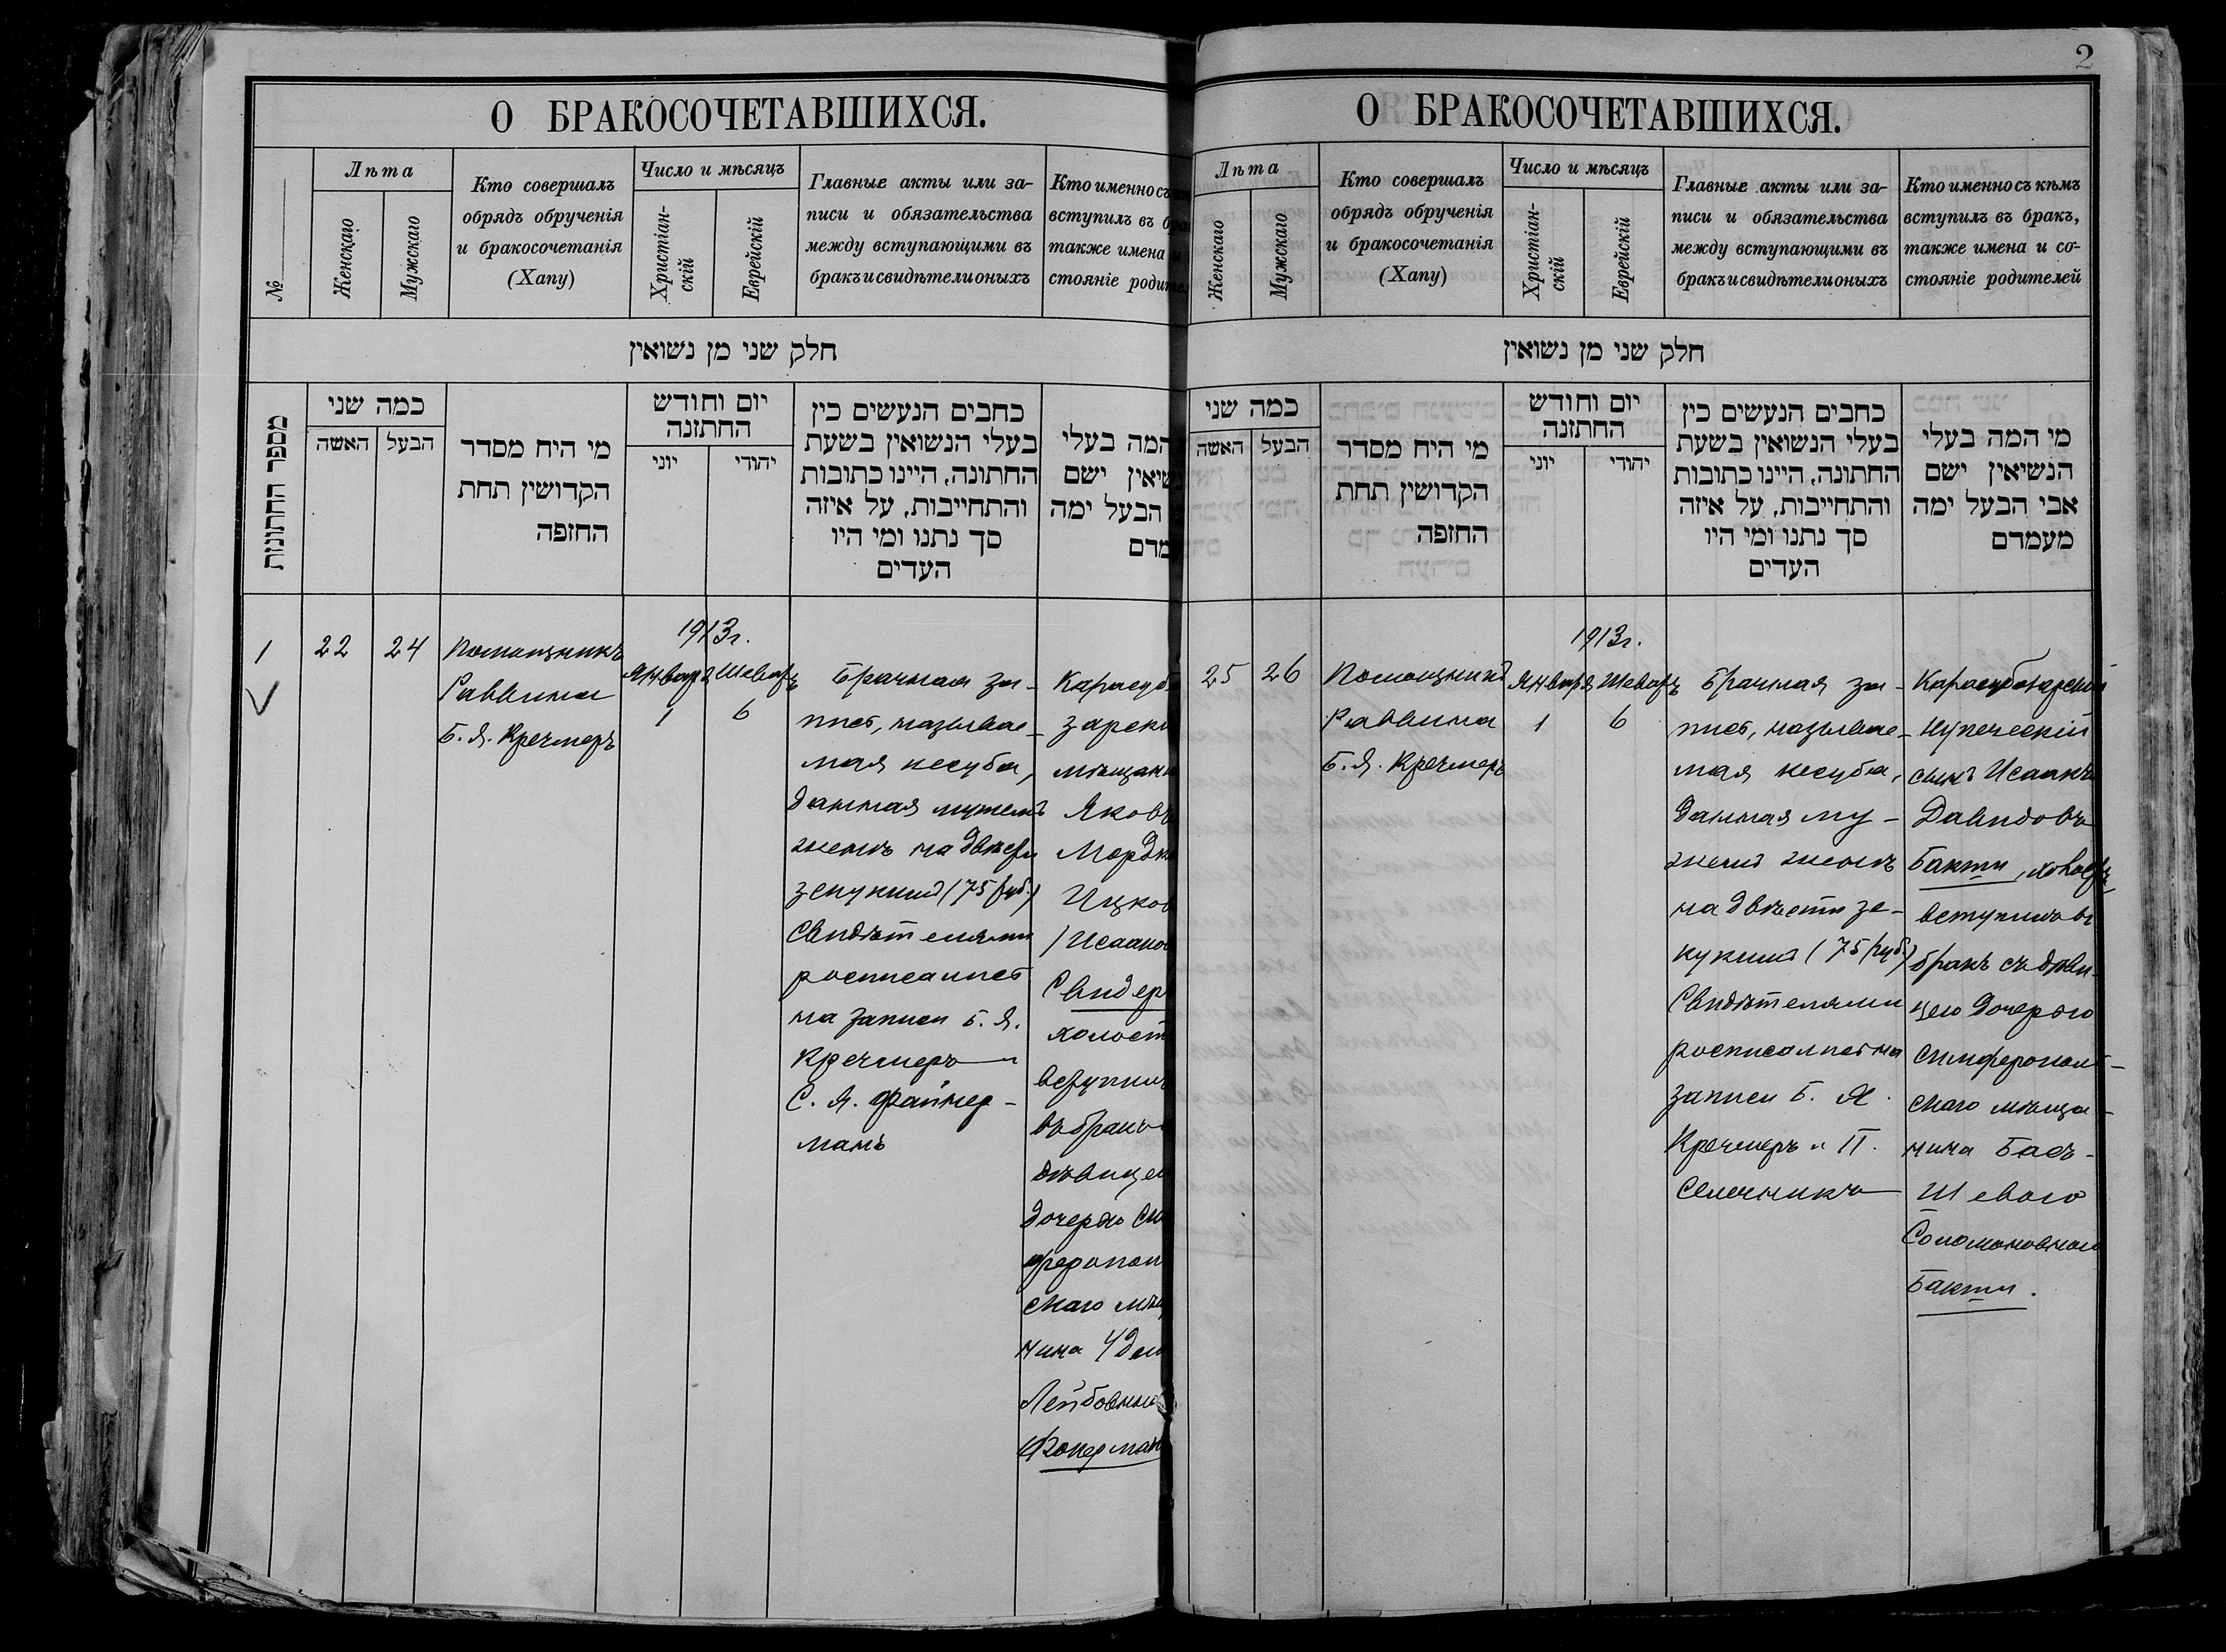 О БРАКОСОЧЕТАВШИХСЯ.
№
Лѣта
Женскаго
Мужскаго
Кто совершалъ
обрядъ обрученія
и бракосочетанія
(Хапу)
Число и мѣсяцъ
Христіан-
скій
Еврейскій
Главные акты или за-
писи и обязательства
между вступающими въ
бракъ и свидѣтели оныхъ
Кто именно съ
вступилъ въ
также имена
стояніе
חלק שני מן נשואין
מספר החתונות
כמה שני
האשה
הבעל
מי היח מסדר
הקדושין תחת
החזפה
יום וחודש
החתזנה
יוני
יהודי
כחבים הנעשים כין
בעלי הנשואין בשעת
החתונה, היינו כתובות
והתחייבות, על איזה
סך נתנו ומי היו
העדים
המה בעלי
ישם
הבעל ימה
1
22
24
Помощникъ
Раввина
Б. Я. Кречмеръ
1913 г.
Января
1
Шеватъ
6
Брачная за-
пись, называе-
мая кесуба,
данная мужемъ
женѣ на двѣсти
зекукимъ (75 руб.)
Свидѣтелями
росписались
на записи Б. Я.
Кречмеръ и
С. Я. Файнер-
манъ
Карасуб
зарск
мѣщан
Яковъ
Мордк
Ицков
/Исааков
Свидер
холост
вступил
въ бракъ
дѣвицею
дочерью Си
феропол
скаго мѣщ
нина Удел
Лейбовн
Фокерман
2
О БРАКОСОЧЕТАВШИХСЯ.
Лѣта
Женскаго
Мужскаго
Кто совершалъ
обрядъ обрученія
и бракосочетанія
(Хапу)
Число и мѣсяцъ
Христіан-
скій
Еврейскій
Главные акты или за-
писи и обязательства
между вступающими въ
бракъ и свидѣтели оныхъ
Кто именно съ кѣмъ
вступилъ въ бракъ,
также имена и со-
стояніе родителей
חלק שני מן נשואין
כמה שני
האשה
הבעל
מי היח מסדר
הקדושין תחת
החזפה
יום וחודש
החתזנה
יוני
יהודי
כחבים הנעשים כין
בעלי הנשואין בשעת
החתונה, היינו כתובות
והתחייבות, על איזה
סך נתנו ומי היו
העדים
מי המה בעלי
הנשיאין ישם
אבי הבעל ימה
מעמדם
25
26
Помощникъ
Раввина
Б. Я. Кречмеръ
1913 г.
Января
1
Шеватъ
6
Брачная за-
пись, называе-
мая кесуба,
данная му-
жемъ женѣ
на двѣсти зе-
кукимъ (75 руб.)
Свидѣтелями
росписались на
записи Б. Я.
Кречмеръ и П.
Селечникъ
Карасубазарскій
купеческій
сынъ Исаакъ
Давидовъ
Бакти, холостъ,
вступилъ въ
бракъ съ дѣви-
цею дочерью
симферополь-
скаго мѣща-
нина Басъ-
Шевою
Соломоновною
Бакти.